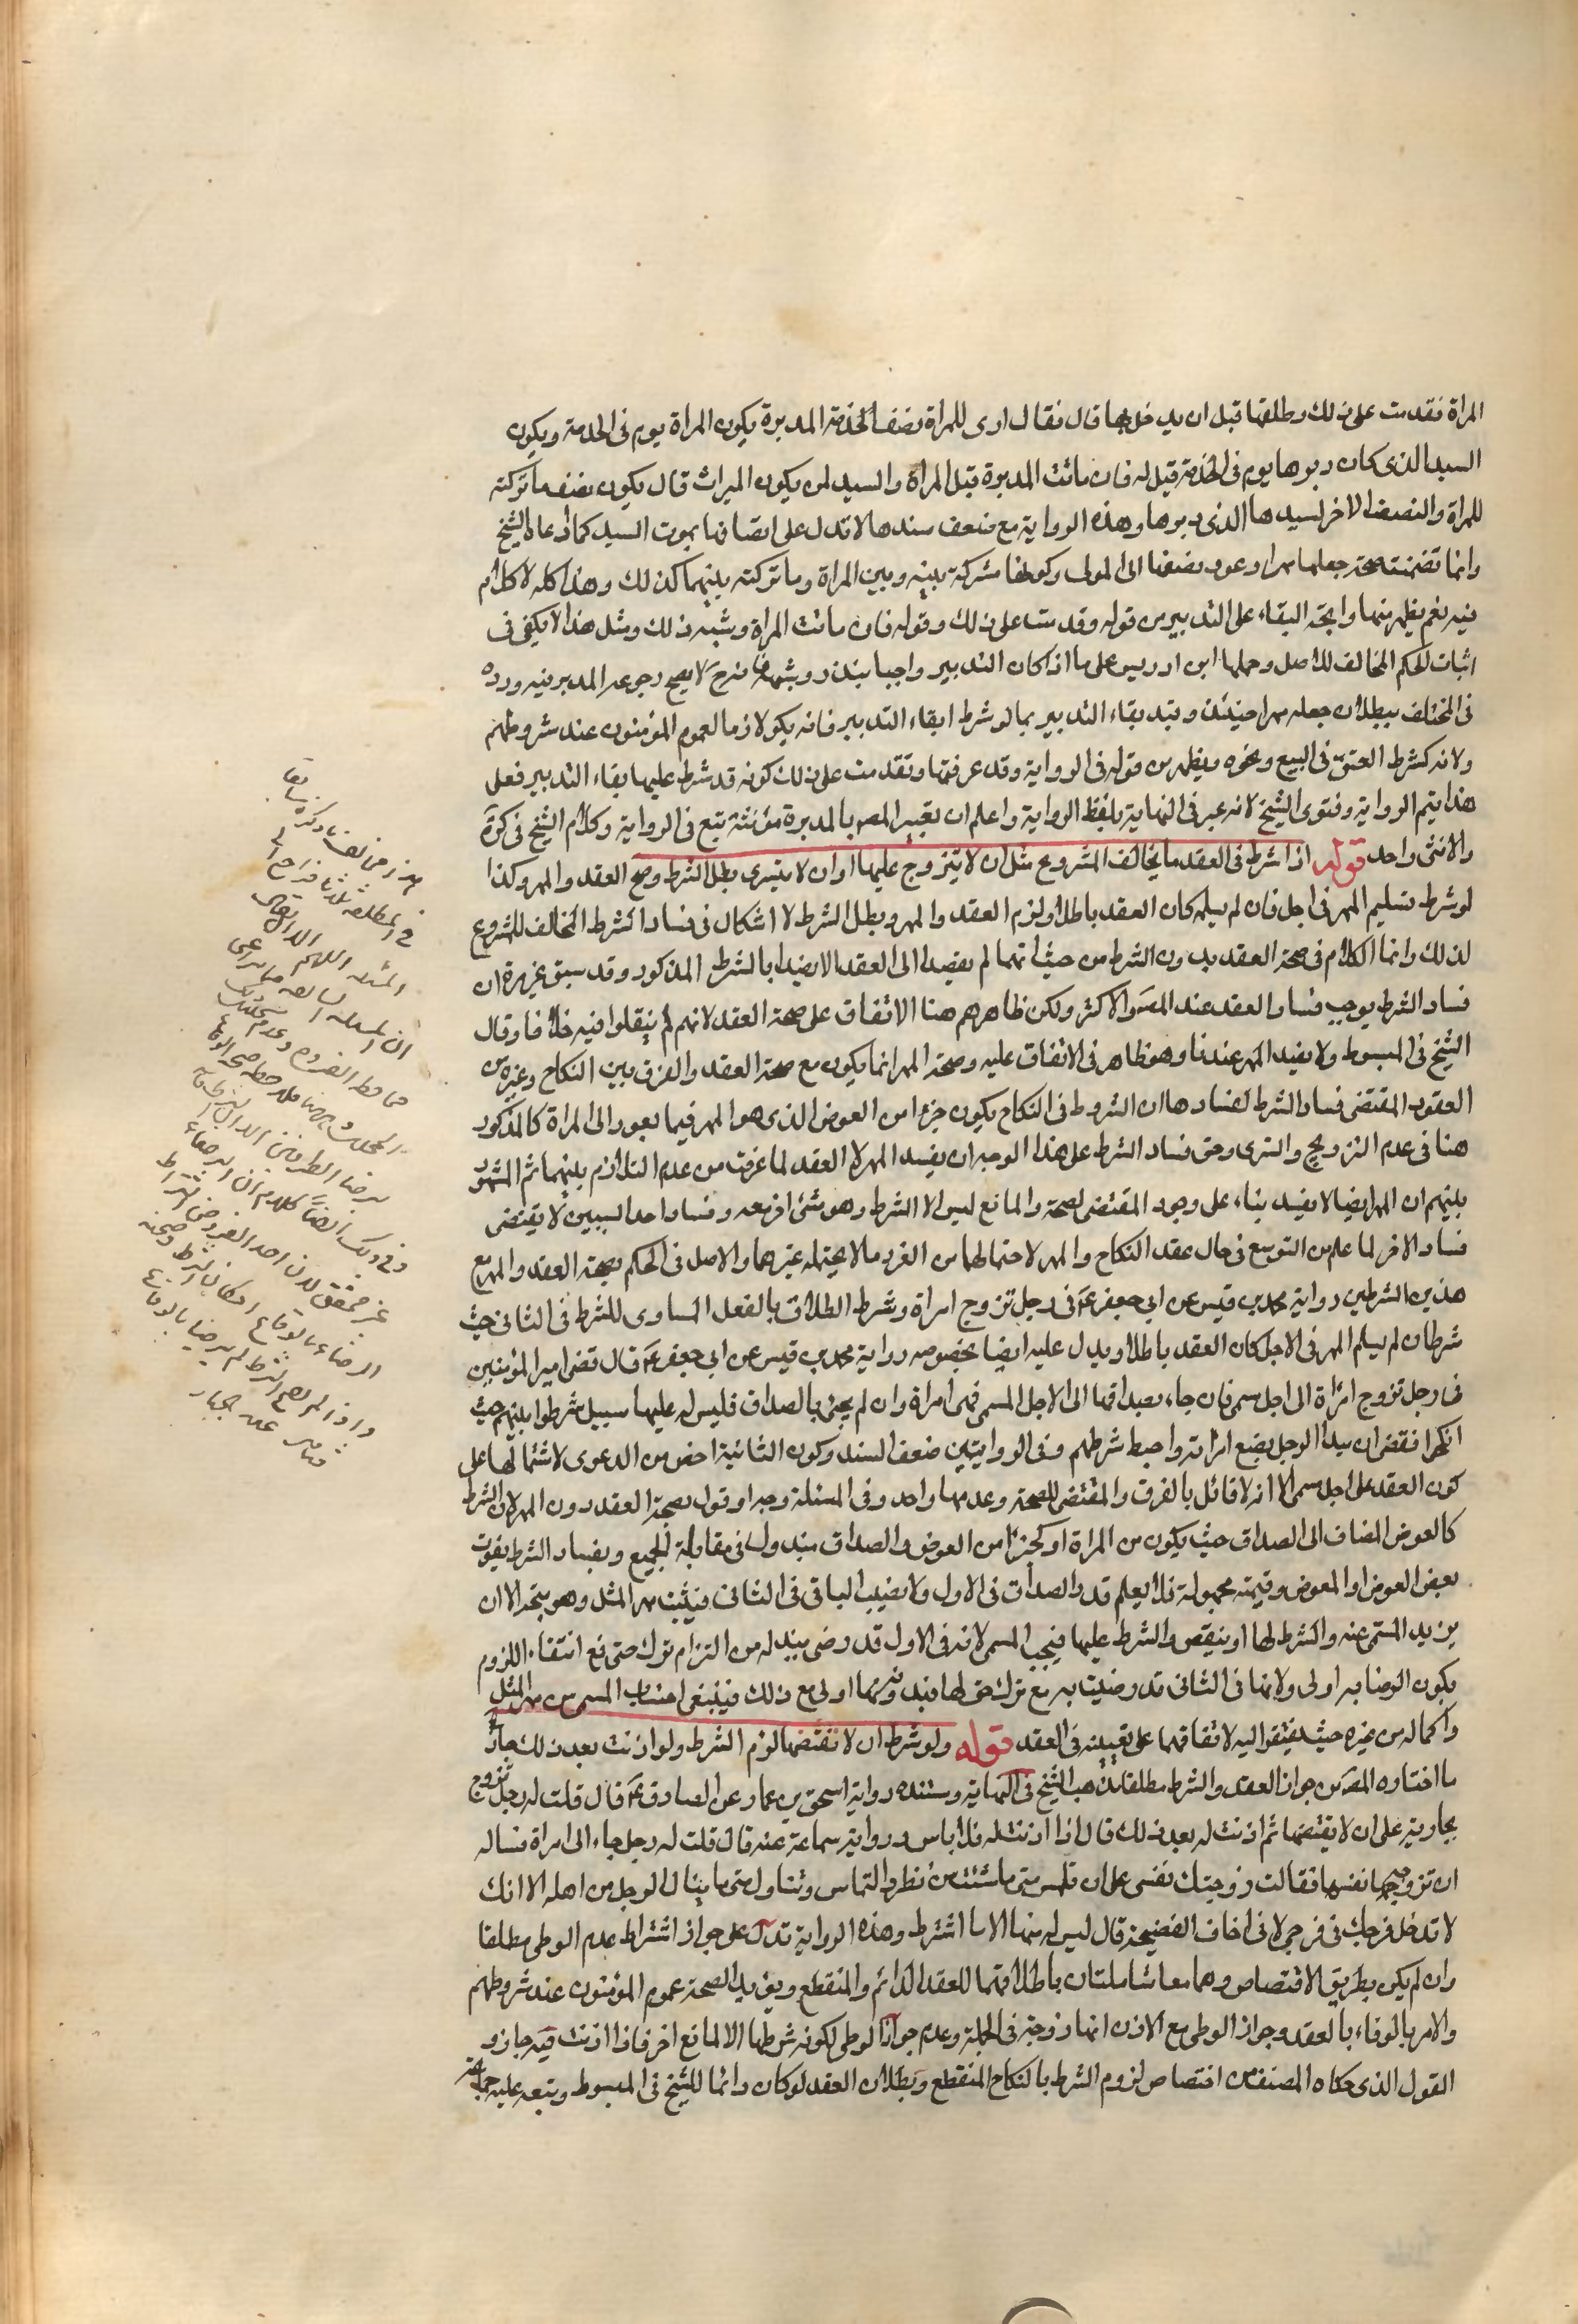 المراة فقدمت على ذلك وطلقها قبل ان يدخل بها قال فقال ارى للمراة نصف الخدمة المدبرة يكون المراة يوم فى الخدمة ويكون
السيد الذى كان دبرها يوم فى الخدمة قيل له فان ماتت المدبرة قبل المراة والسيد لمن يكون الميراث قال يكون نصف ما تركته
للمراة والنصف الاخر لسيدها الذى دبرها وهذه الرواية مع ضعف سندها لا تدل على انعتاقها بموت السيد كما ادعاه الشيخ
وانما تضمنت صحة جعلها مهرا وعود نصفها الى المولى وكونها مشركة بينه وبين المراة وما تركته بينهما كذلك وهذا كله لا كلام
فيه نعم يظهر منها رايحة البقاء على التدبير من قوله وقدمت على ذلك وقوله فان ماتت المراة وشبه ذلك ومثل هذا لا يكفى فى
اثبات الحكم المخالف للاصل وحملها ابن ادريس على ما اذا كان التدبير واجبا بنذر وشبهه فانه ح لا يصح رجوع المدبر فيه ورده
فى المختلف ببطلان جعله مهرا حينئذ وقيد بقاء التدبير بما لو شرط ابقاء التدبير فانه يكون لازما لعموم المؤمنون عند شروطهم
ولانه كشرط العتق فى البيع ونحوه ويظهر من قوله فى الرواية وقد عرفتها وتقدمت على ذلك كونه قد شرط عليها بقاء التدبير فعلى
هذا يتم الرواية وفتوى الشيخ لانه عبر فى النهاية بلفظ الرواية واعلم ان تعبير المص بالمدبرة مؤنثة تبع فى الرواية وكلام الشيخ فى كون
والانثى واحد قوله اذا شرط فى العقد ما يخالف المشروع مثل ان لا يتزوج عليها او ان لا يتسرى بطل الشرط وصح العقد والمهر وكذا
لو شرط تسليم المهر فى اجل فان لم يسلمه كان العقد باطلا ولزم العقد والمهر وبطل الشرط لا اشكال فى فساد الشرط المخالف للمشروع
لذلك وانما الكلام فى صحة العقد بدون الشرط من حيث انهما لم يقصدا الى العقد الا بهذا بالشرط المذكور وقد سبق غير مرة ان
فساد الشرط يوجب فساد العقد عند المص والاكثر ولكن ظاهرهم هنا الاتفاق على صحة العقد لانهم لم ينقلوا فيه خلافا وقال
الشيخ فى المبسوط ولا يفسد المهر عندنا وهو ظاهر فى الاتفاق عليه وصحة المهر انما يكون مع صحة العقد والفرق بين النكاح وغيره من
العقود المقتضى فساد الشرط لفسادها ان الشروط فى النكاح يكون جزءا من العوض الذى هو المهر فيما يعود الى المراة كالمذكور
هنا فى عدم التزويج والتسرى وحق فساد الشرط على هذا الوجه ان يفسد المهر لا العقد لما عرفت من عدم التلازم بينهما ثم المشهور
بينهم ان المهر ايضا لا يفسد بناء على وجود المقتضى لصحته والمانع ليس الا الشرط وهو شئ اخر معه وفساد احد السببين لا يقتضى
فساد الاخر لما علم من التوسع فى حال عقد النكاح والمهر لاحتمالهما من الغرر ما لا يحتمله غيرهما والاصل فى الحكم بصحة العقد والمهر مع
هذين الشرطين رواية محمد بن قيس عن ابى جعفر ع فى رجل تزوج امراة وشرط الطلاق بالفعل المساوى للشرط فى الثانى حيث
شرط ان لم يسلم المهر فى الاجل كان العقد باطلا ويدل عليه ايضا بخصوصه رواية محمد بن قيس عن ابى جعفر ع قال قضى امير المؤمنين
فى رجل تزوج امراة الى اجل مسمى فان جاء بصداقها الى الاجل المسمى فهى امراة وان لم يجئ بالصداق فليس له عليها سبيل شرطوا بينهم حيث
انكحوا فقضى ان بيد الرجل بضع امراته واحبط شرطهم وفى الروايتين ضعف السند وكون الثانية اخص من الدعوى لاشتمالها على
كون العقد على اجل مسمى الا انه لا قائل بالفرق والمقتضى للصحة وعدمها واحد وفى المسئلة وجه او قول بصحة العقد دون المهر لان الشرط
كالعوض المضاف الى الصداق حيث يكون من المراة او كجزء من العوض والصداق مبذول فى مقابلة الجميع وبفساد الشرط يفوت
بعض العوض او المعوض وقيمته مجهولة فلا يعلم قدر الصداق فى الاول ولا نصيب الباقى فى الثانى فيثبت مهر المثل وهو متجه الا ان
يزيد المسمى عنه والشرط لها او ينقص والشرط عليها فيجب المسمى لانه فى الاول قد رضى ببذله مع التزام ترك حق فمع انتفاء اللزوم
يكون الرضا به اولى ولانها فى الثانى قد رضيت به مع ترك حق لها فبدونه اولى مع ذلك فينبغى احتساب المسمى من مهر المثل
واكماله من غيره حيث يفتقر اليه لاتفاقهما على تعيينه فى العقد قوله ولو شرط ان لا يقتضها لزم الشرط ولو اذنت بعد ذلك جاز
ما اختاره المص من جواز العقد والشرط مطلقا مذهب الشيخ فى النهاية ومستنده رواية اسحق بن عمار عن الصادق ع قال قلت له رجل تزوج
بجارية على ان لا يقتضها ثم اذنت له بعد ذلك قال اذا اذنت له فلا باس ورواية سماعة عنه قال قلت له رجل جاء الى امراة فساله
ان تزوجه نفسها فقالت زوجتك نفسى على ان تلتمس منى ما شئت من نظر والتماس وتنال منى ما ينال الرجل من اهله الا انك
لا تدخل فرجك فى فرجى لانى اخاف الفضيحة قال ليس له منها الا ما اشترط وهذه الرواية تدل على جواز اشتراط عدم الوطى مطلقا
وان لم يكن بطريق الاقتضاض وهما معا شاملتان باطلاقهما للعقد الدائم والمنقطع ويؤيد الصحة عموم المؤمنون عند شروطهم
والامر بالوفاء بالعقد وجواز الوطى مع الاذن انها زوجته فى الجملة وعدم جواز الوطى لكونه شرطها لا لمانع اخر فاذا اذنت فيه جاز و
القول الذى حكاه المصنف من اختصاص لزوم الشرط بالنكاح المنقطع وبطلان العقد لو كان دائما للشيخ فى المبسوط وتبعه عليه جماعة